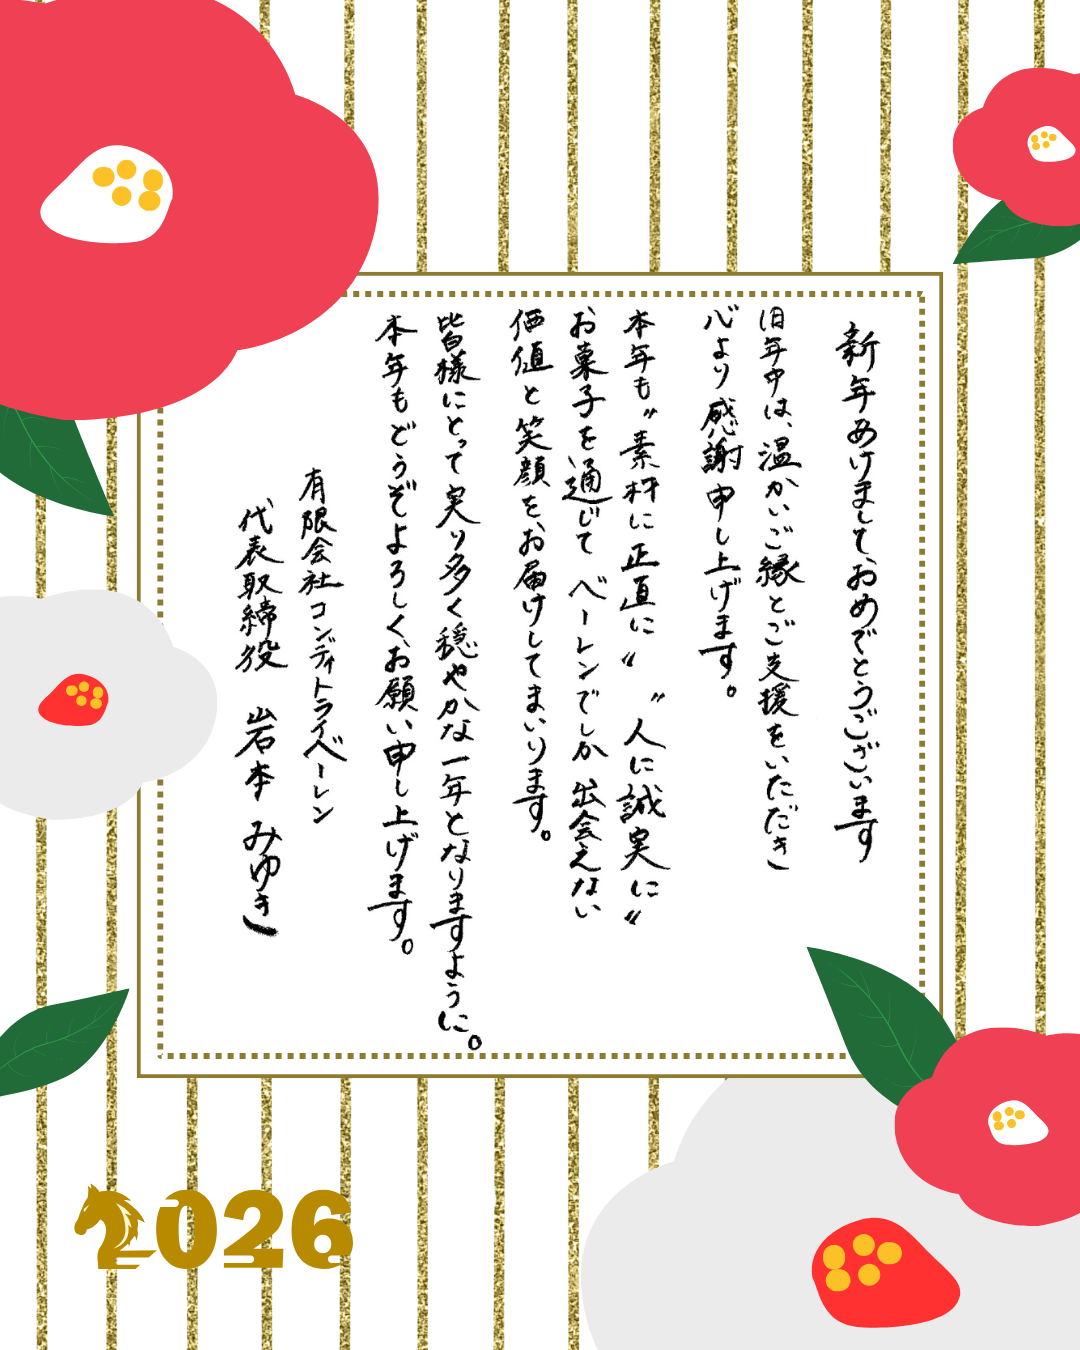 新年あけましておめでとうございます
旧年中は、温かいご縁とご支援をいただき
心より感謝申し上げます。
本年も〝素材に正直に〟〝人に誠実に〟
お菓子を通じて ベーレンでしか出会えない
価値と笑顔を、お届けしてまいります。
皆様にとって実り多く穏やかな一年となりますように。
本年もどうぞよろしくお願い申し上げます。
有限会社コンディトライベーレン
代表取締役 岩本 みゆき
2026